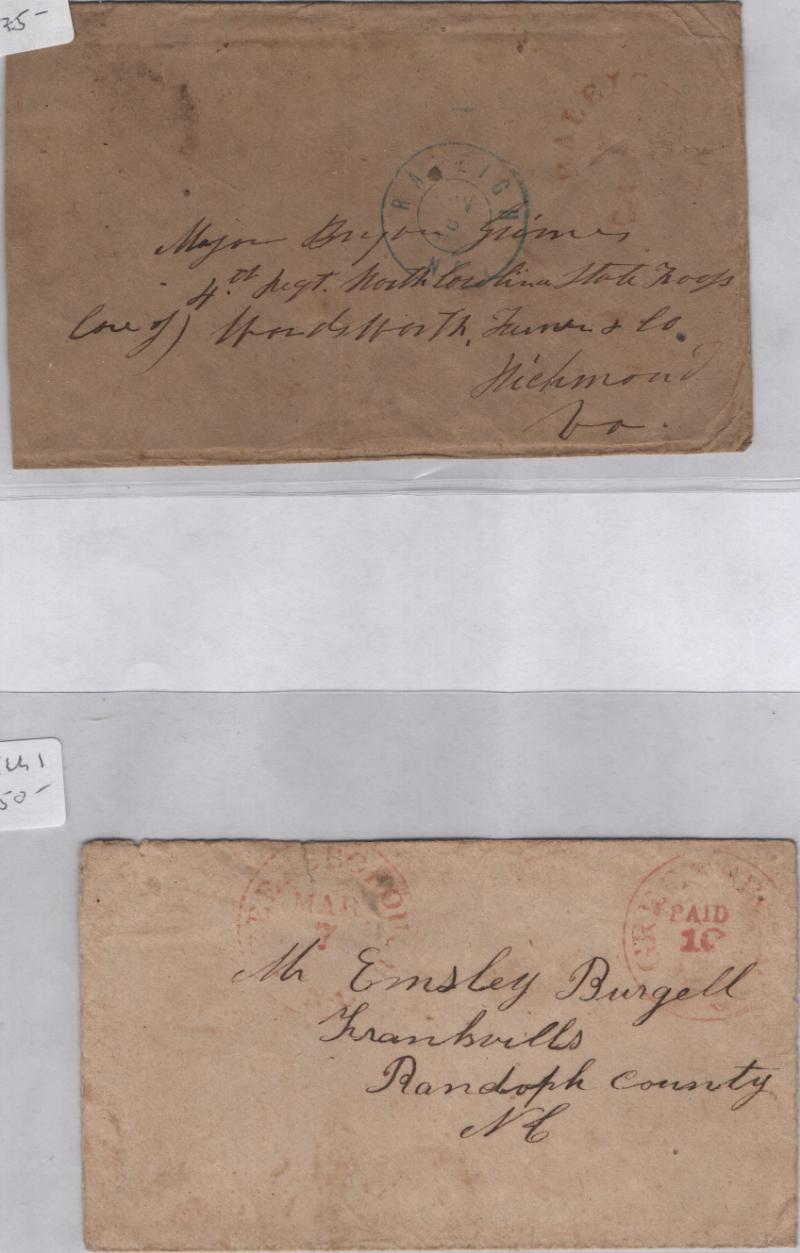 35-
RALEIGH
N.C.
Major Bryan Grimes
4th Regt. North Carolina State Troops
Care of) Wordsworth, Turner & Co
Richmond
Va.
50-
MAR
7
PAID
10
Mr Emsley Burgell
Frankvills
Randoph county
NC